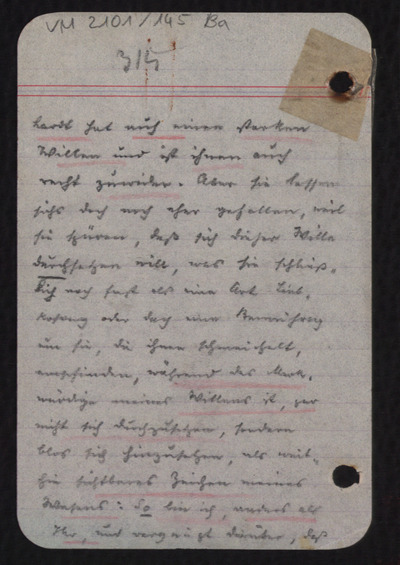 VM 2101/145 Ba
315
hardt hat auch einen starken
Willen und ist ihnen auch
recht zuwider. Aber sie lassen
sichs doch noch eher gefallen, weil
sie spüren, daß sich dieser Wille
durchsetzen will, was sie schließ-
lich noch fast als eine Art Lieb-
kosung oder doch eine Bemühung
um sie, die ihnen schmeichelt,
empfinden, während das Merk-
würdige meines Willens ist, gar
nicht sich durchzusetzen, sondern
blos sich hinzusetzen, als
sichtbares Zeichen meines
Wesens: So bin ich, anders als
Ihr, und vergnügt darüber, daß